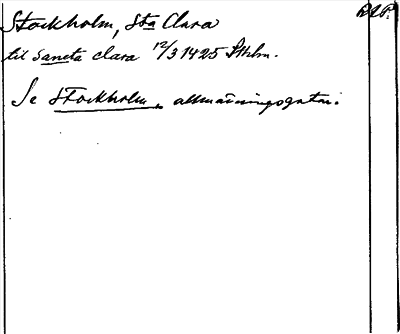 Stockholm, Sta Clara
til sancta clara 12/3 1425 Sthlm.
Se Stockholm, allmänningsgatan.